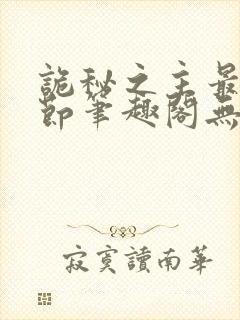 詭秘之主最
節筆趣閣無
寂寞讀南華